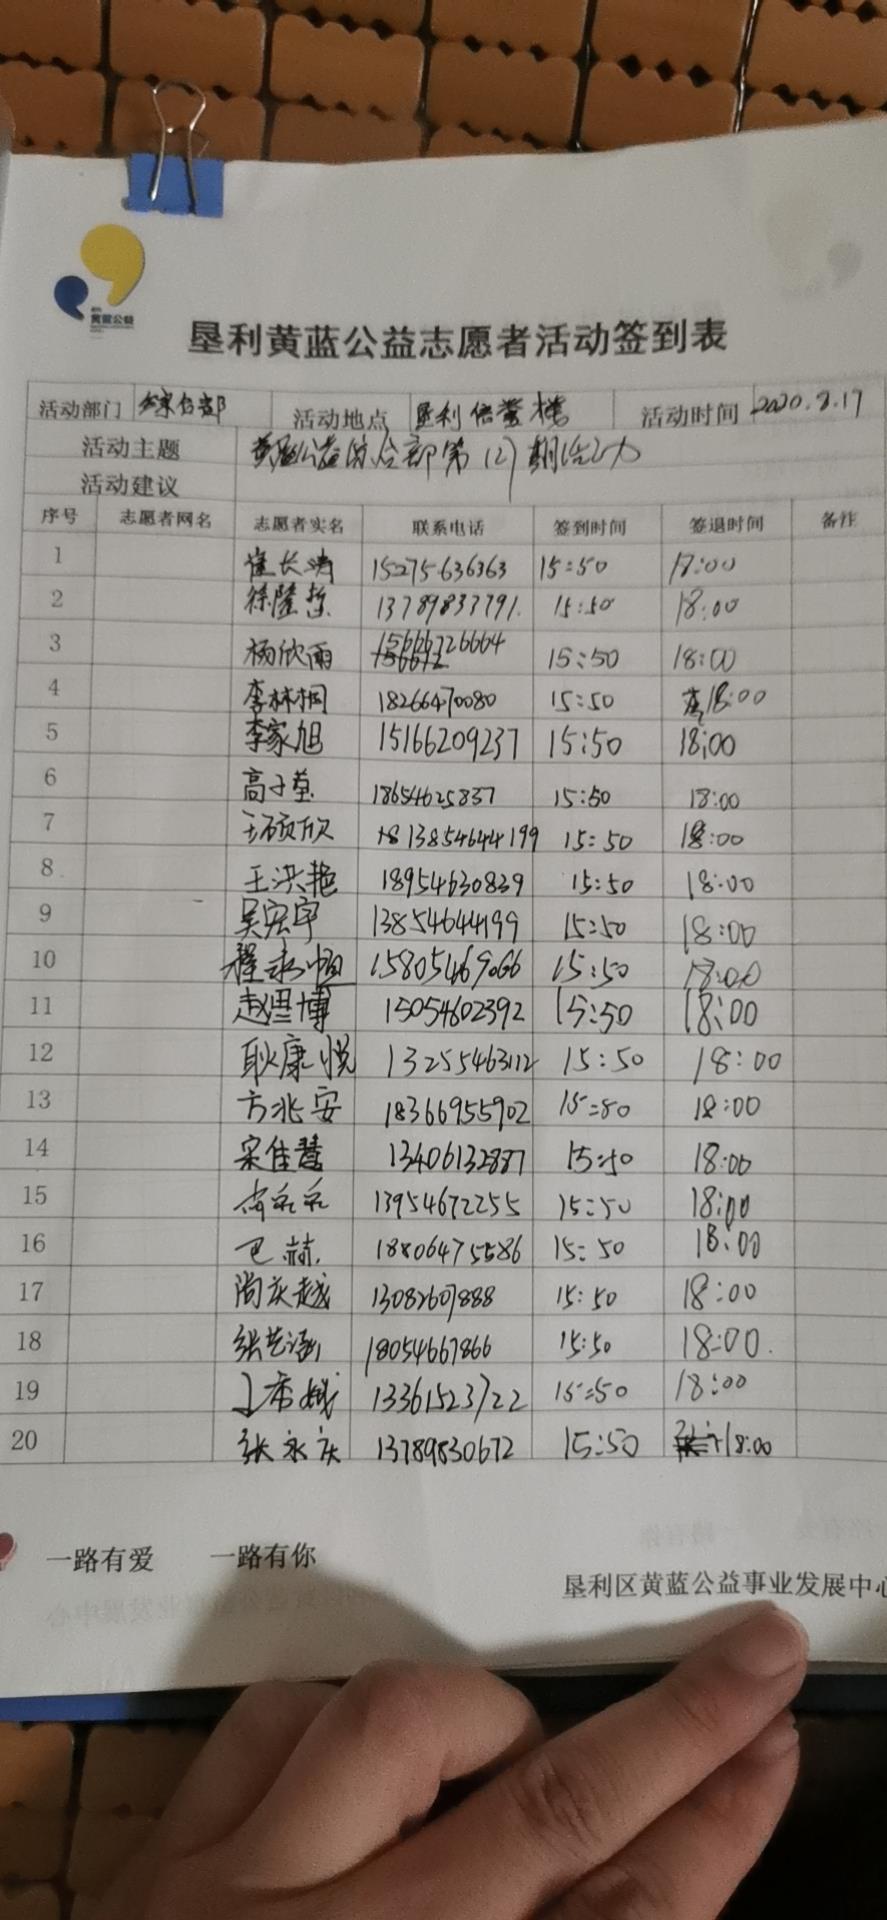 黄蓝公益
垦利黄蓝公益志愿者活动签到表
活动部门 综合部 活动地点 垦利 活动时间 2020.8.17
活动主题 黄蓝公益综合部第12期活动
活动建议
序号 志愿者网名 志愿者实名 联系电话 签到时间 签退时间 备注
1 崔长 15275636363 15:50 18:00
2 徐隆哲 13789833791 15:50 18:00
3 杨欣雨 15666726664 15:50 18:00
4 李林桐 18266470080 15:50 18:00
5 李家旭 15166209237 15:50 18:00
6 高子 18654625837 15:50 18:00
7 王硕欣 13854644199 15:50 18:00
8 王洪艳 18954630839 15:50 18:00
9 吴宏宇 13854644199 15:50 18:00
10 程永恒 15805469066 15:50 18:00
11 赵思博 15054602392 15:50 18:00
12 耿康悦 13255463112 15:50 18:00
13 方兆安 18366955902 15:50 18:00
14 宋佳慧 13406132887 15:50 18:00
15 13954672255 15:50 18:00
16 巴赫 18806475586 15:50 18:00
17 尚庆越 13082607888 15:50 18:00
18 张艺涵 18054667866 15:50 18:00
19 13361523722 15:50 18:00
20 张永庆 13789830672 15:50 18:00
一路有爱 一路有你
垦利区黄蓝公益事业发展中心